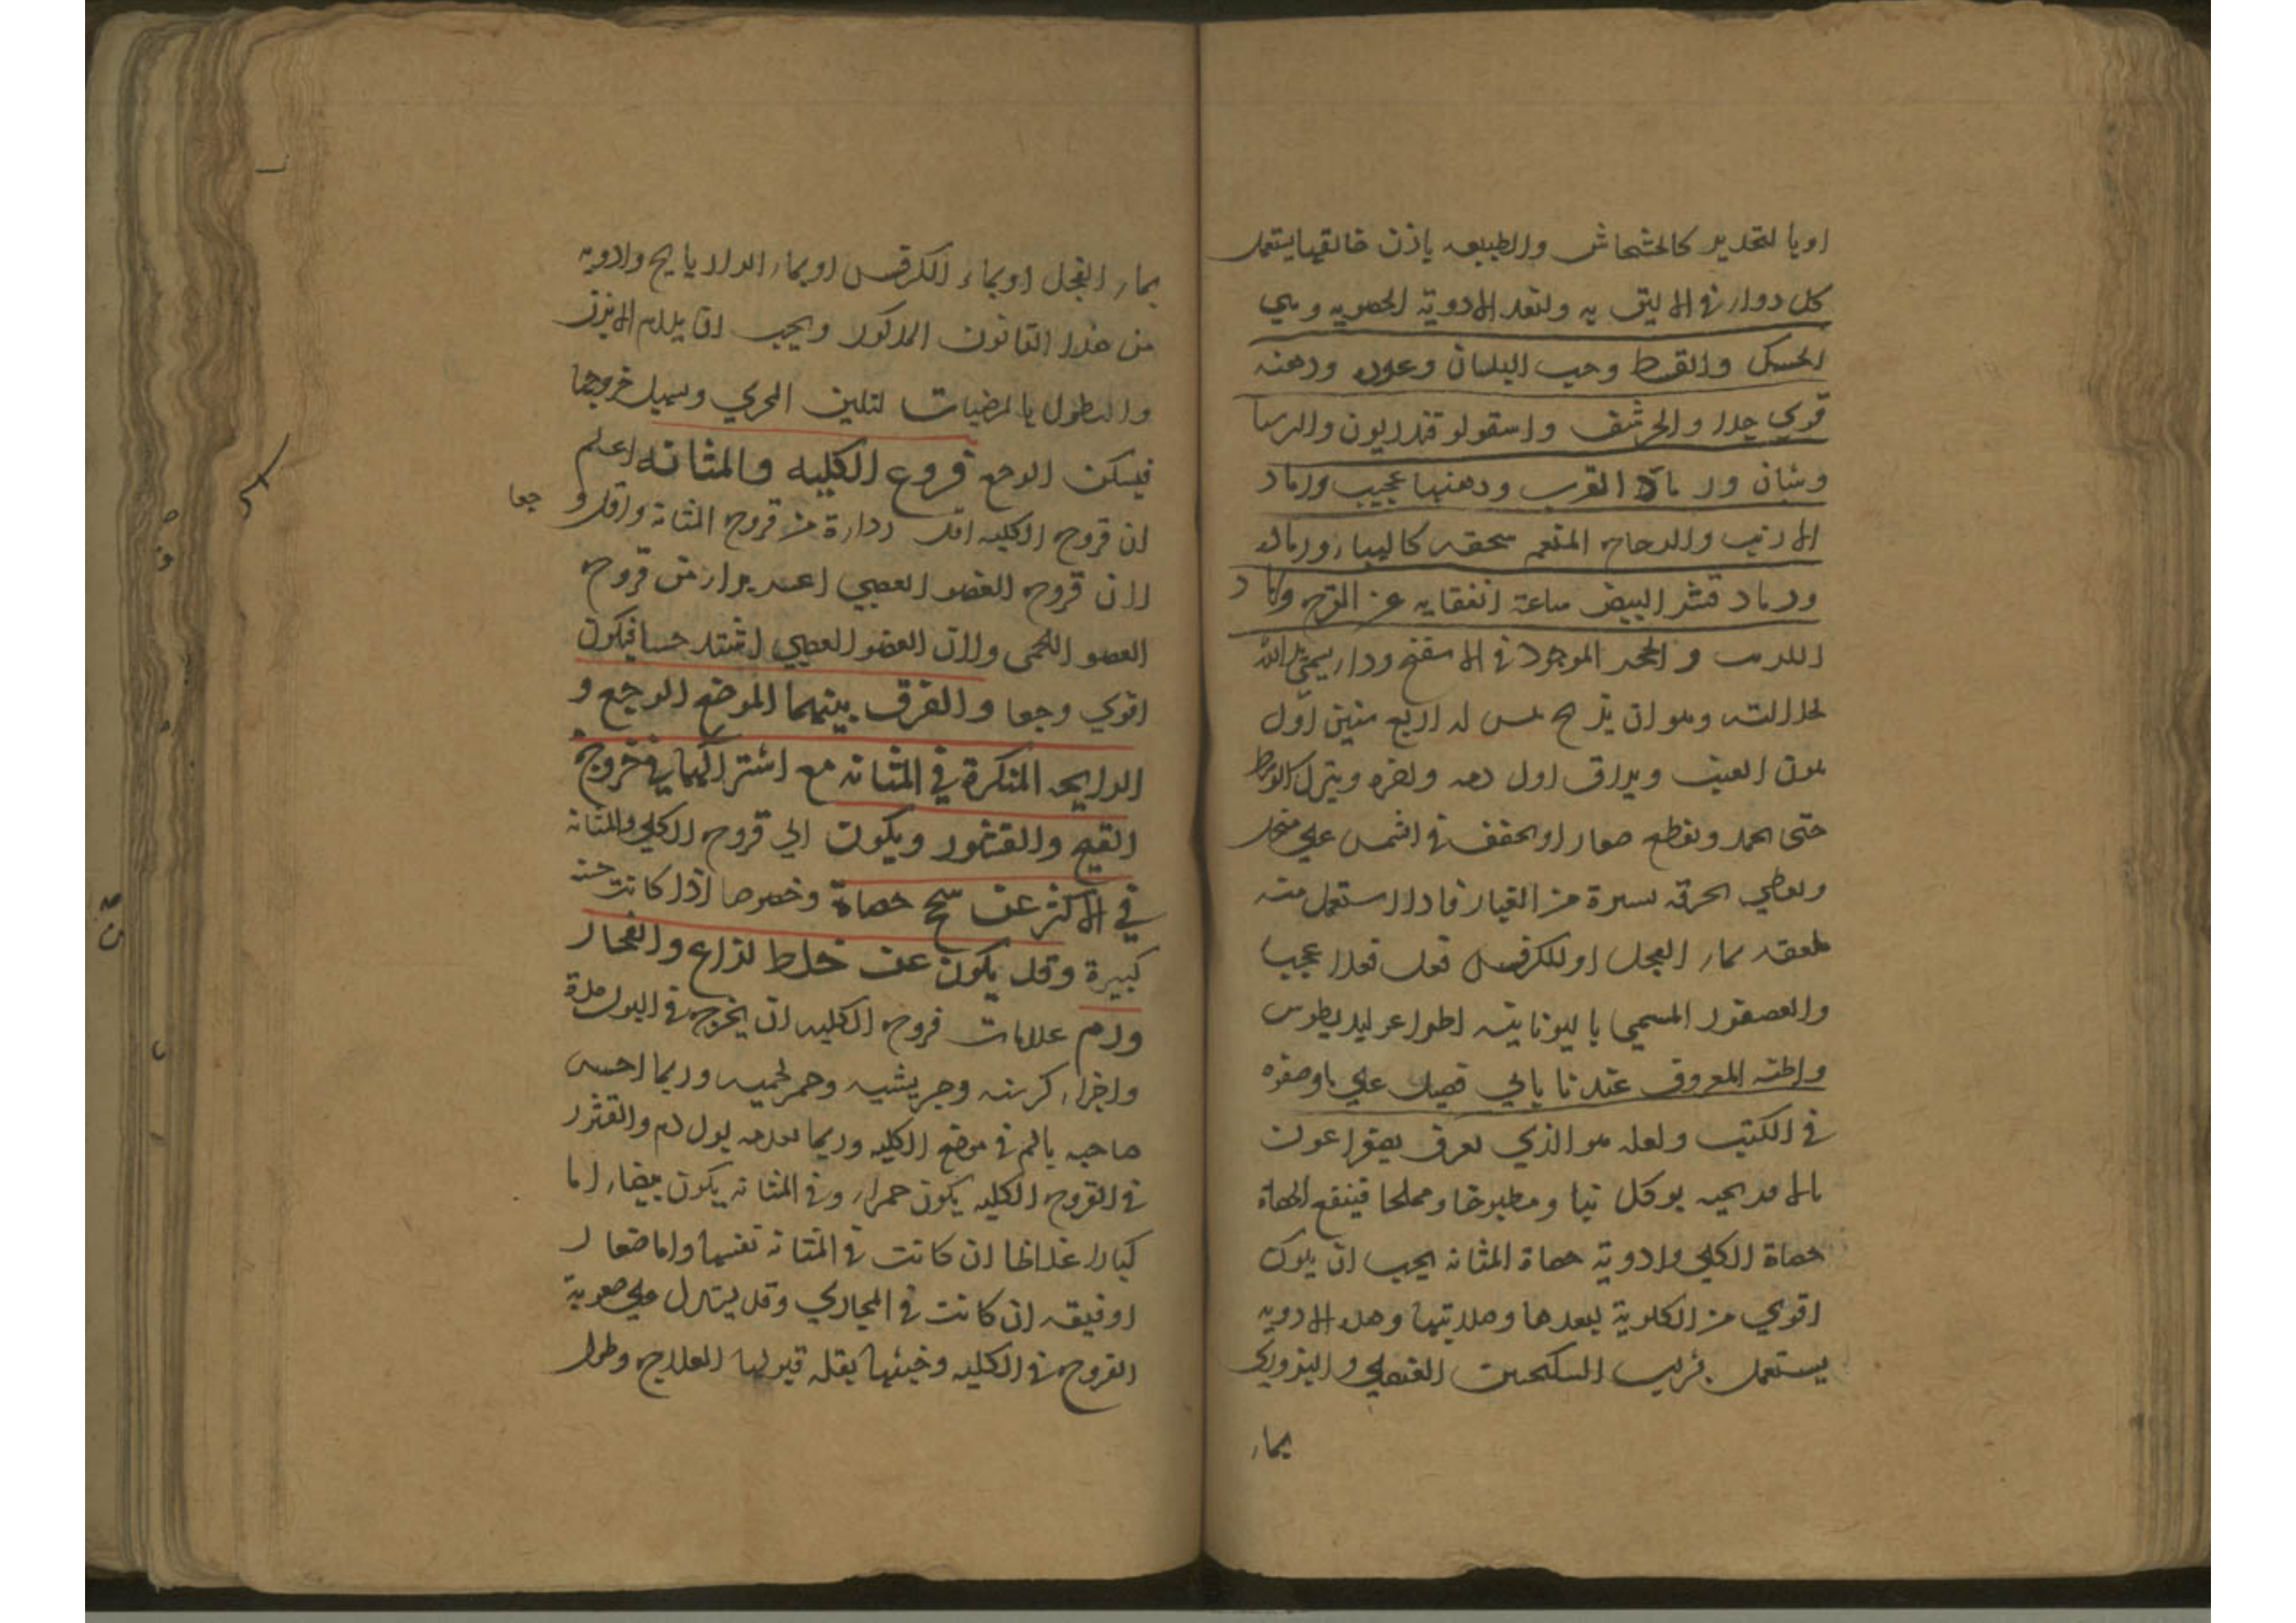 اويا لتحدير كالخشخاش والطبيعه ياذن خالقها يستعمل
كل دواء في الا ليق به ولنعد الادوية الحصويه وهي
الحسك والقسط وحب البلسان وعوده ودهنه
قوي جدا والحرشف واسقولو قندريون والبرسيا
وشان ورماد العقرب ودهنها عجيب ورماد
الارنب والدجاج المنعم سحقه كالهباء ورماد
ورماد قشر البيض ساعة انفقايه عن الفرج
والحجر الموجود في الاسفنج ودواء يسمى يد الله
لجلالته وهو ان يذبح تيس له اربع سنين اول
تلون العنب ويراق اول دمه واخره ويترك الاوسط
حتى يجمد ويقطع صغارا ويجفف في الشمس علي منخل
ويغطي بخرقه يستره من الغبار فاذا استعمل منه
ملعقه بماء الفجل او الكرفس فعل فعلا عجيبا
والعصفور المسمي با ليونانية اطراغوليديطوس
واظنه المعروف عندنا بابي فصيل علي ماوصفوه
في الكتب ولعله هو الذي يعرف بصفراعون
بالافرنجيه يوكل نيا ومطبوخا ومملحا فينفع الحصاة
حصاة الكلي وادوية حصاة المثانه يجب ان يكون
اقوي من الكلوية لبعدها وصلابتها وهذه الادويه
يستعمل بشراب السكنجبين العنصلي والبزوري
بماء
بماء الفجل او بماء الكرفس او بماء الرازيايح وادوية
من هذا القانون المذكور ويجب ان يلازم الابزن
والنطول بالمرخيات لتلين المجري ويسهل خروجها
فيسكن الوجع قروح الكليه والمثانه اعلم
ان قروح الكليه اقل رداءة من قروح المثانة واقل و جعا
لان قروح العضو العصبي اعسر برءا من قروح
العضو اللحمى ولان العضو العصبي اشتد حسا فيكون
اقوي وجعا والفرق بينهما الموضع الوجع و
الرايحه المنكرة في المثانه مع اشتراكهما في خروج
القيح والقشور ويكون الي قروح الكلي والمثانه
في الاكثر عن سحج حصاة وخصوصا اذا كانت خشنه
كبيرة وقد يكون عن خلط لذاع وانفجار
ورم علامات قروح الكليه ان يخرج في البول مدة
واجزاء كرسنه وجريشيه وحمر لحميه وربما احس
صاحبه بالم في موضع الكليه وربما تقدمه بول دم والقشور
في القروح الكليه يكون حمراء وفي المثانه يكون بيضاء اما
كبارا غلاظا ان كانت في المثانه نفسها واما صغار
اورقيقه ان كانت في المجاري وقد يستدل علي صعوبة
القروح في الكليه وخبثها بقلة قبولها العلاج وطول